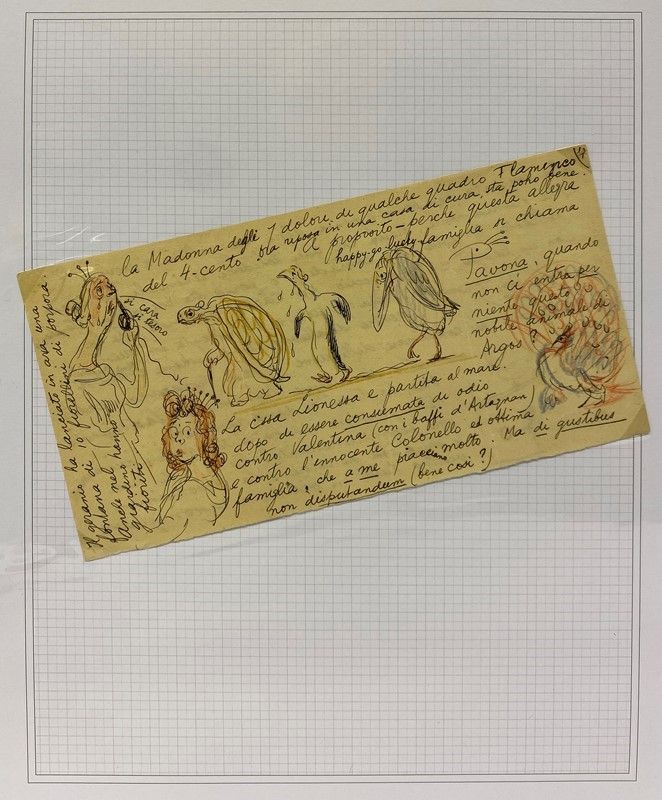 la Madonna degli 7 dolori di qualche quadro Flamenco
del 4-cento. Ora riposa in una casa di cura, sta poho bene.
A proposito - perche questa allegra
happy-go-lucky famiglia si chiama
Pavona, quando
non ci entra per
niente questo
nobile animale di
Argos?
di cara
di tesoro
La Ciosa Lionessa e partita al mare.
dopo di essere consumata di odio
contro Valentina (con i baffi d'Artagnan)
e contro l'innocente Colonello ed ottima
famiglia, che a me piacciono molto. Ma de gustibus
non disputandum (bene così?)
Il geranio ha lanciato in aria una
fontana di 10 fiorellini di porpora.
Anche nel hanno
giardino
fiorito